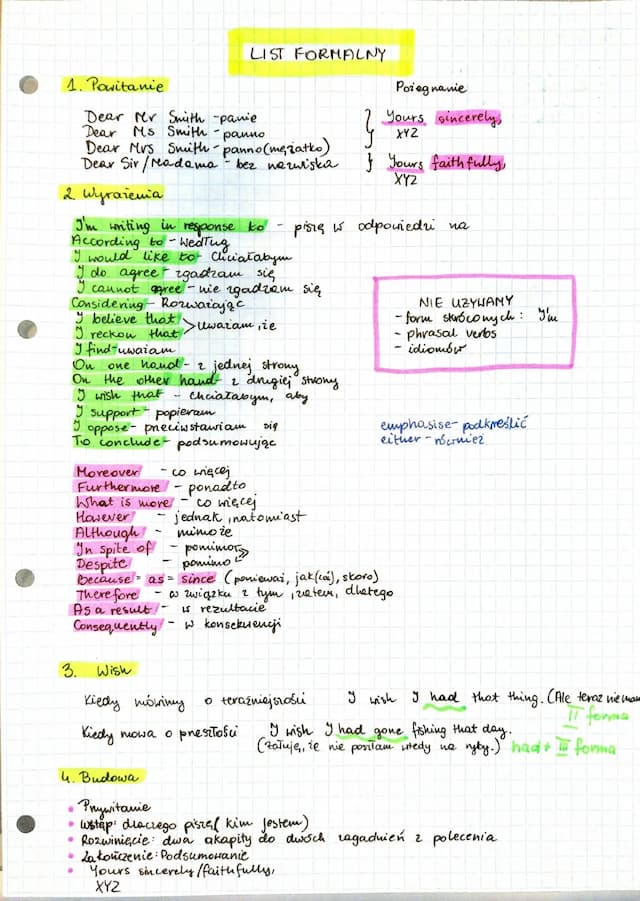 LIST FORMALNY
1. Powitanie
Pożegnanie
Dear Mr Smith - panie
Dear Ms Smith - panno
Dear Mrs Smith - panno (mężatko)
Yours sincerely,
XYZ
Dear Sir/Madama - bez nazwiska
Yours faithfully,
XYZ
2. Wyrażenia
I'm writing in response to - piszę w odpowiedzi na
According to - według
I would like to - chciałabym
I do agree - zgadzam się
I cannot agree - nie zgadzam się
Considering - Rozważając
I believe that
I reckon that > uważam, że
I find - uważam
On one hand - z jednej strony
On the other hand - z drugiej strony
I wish that - chciałabym, aby
I support - popieram
I oppose - przeciwstawiam się
To conclude - podsumowując
NIE UŻYWAMY
- form skróconych: I'm
- phrasal verbs
- idiomów
emphasise - podkreślić
either - również
Moreover - co więcej
Furthermore - ponadto
What is more - co więcej
However - jednak, natomiast
Although - mimo że
In spite of - pomimo
Despite - pomimo
Because = as = since (ponieważ, jak(coś), skoro)
Therefore - w związku z tym, zatem, dlatego
As a result - w rezultacie
Consequently - w konsekwencji
3. Wish
Kiedy mówimy o teraźniejszości I wish I had that thing. (Ale teraz nie mam
II forma
Kiedy mowa o przeszłości I wish I had gone fishing that day.
(żałuję, że nie poszłam wtedy na ryby.) had + III forma
4. Budowa
• Przywitanie
• Wstęp: dlaczego piszę (kim jestem)
• Rozwinięcie: dwa akapity do dwóch zagadnień z polecenia
• Zakończenie: Podsumowanie
• Yours sincerely/faithfully,
XYZ